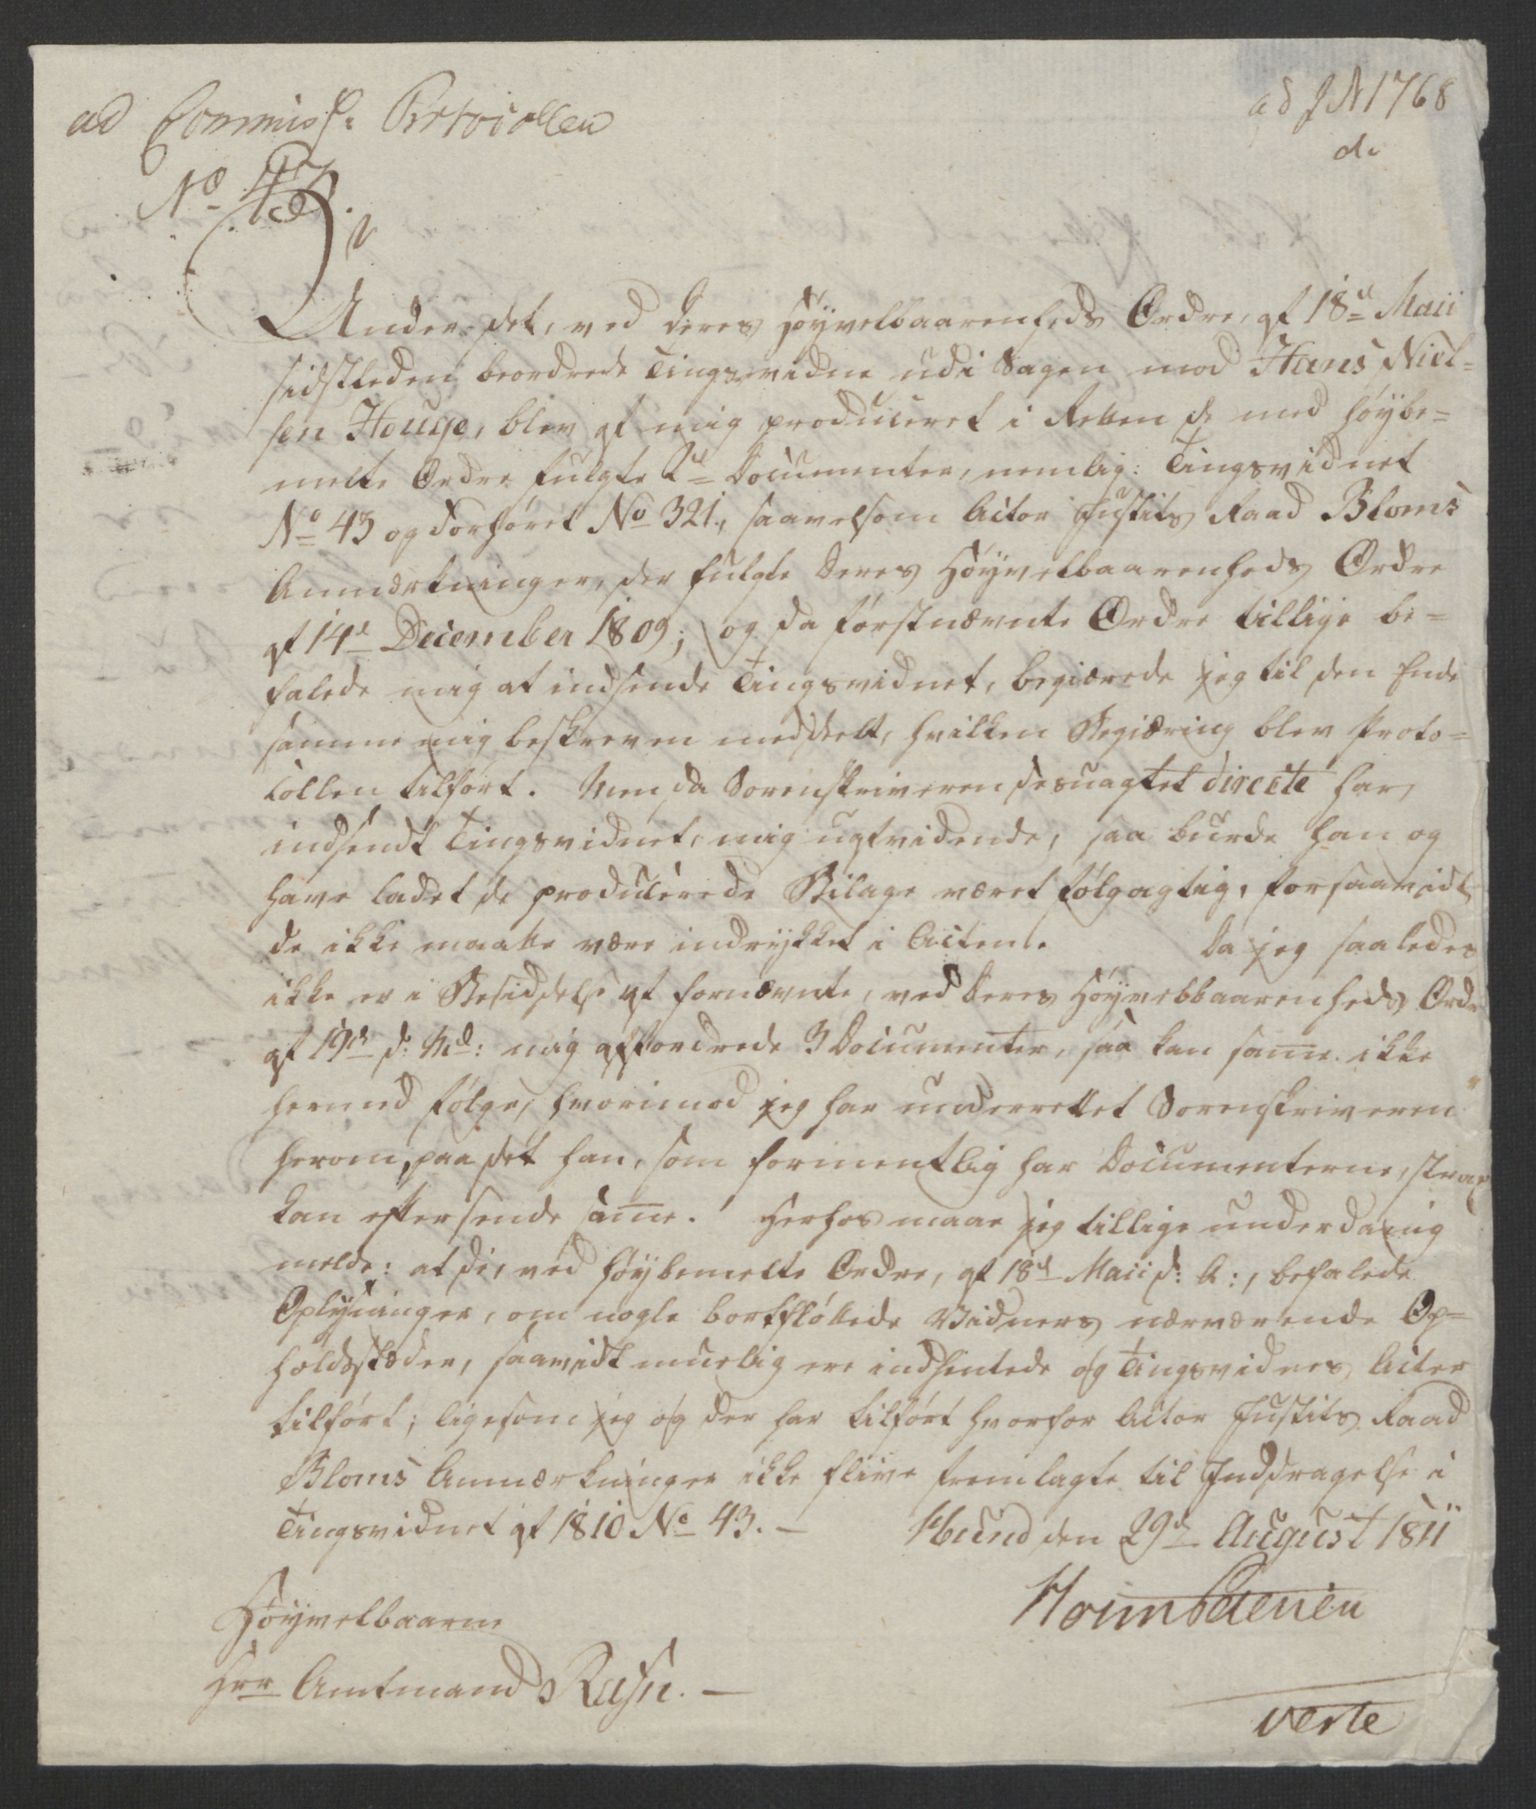 ad Commiss: Protocollen
No 43.
ad J N 1768
Under det, ved Deres Høyvelbaarenheds Ordre, af 18de Maii
sidstleden beordrede Tingsvidne udi Sagen mod Hans Niel-
sen Houge, blev af mig produceret i Retten de med høybe-
melte Ordre fulgte 2de Documenter, nemlig: Tingsvidnet
No 43 og Forhøret No 321., saavelsom Actor Justits Raad Bloms
Anmærkninger, der fulgte Deres Høyvelbaarenheds Ordre
af 14de December 1809; og da førstnævnte Ordre tillige be-
falede mig at indsende Tingsvidnet, begiærede jeg til den Ende
samme mig beskreven meddeelt, hvilken Begiæring blev Proto-
collen tilført. Men da Sorenskriveren desuagtet directe har,
indsendt Tingsvidnet, mig uafvidende, saa burde han og
have ladet de producerede Bilage været følgagtig, forsaavidt
de ikke maatte være indrykket i Acten. Da jeg saaledes
ikke er i Besiddelse af fornævnte, ved Deres Høyvelbaarenheds Ordre
af 19de d: Md: mig affordrede 3 Documenter, saa kan samme ikke
hermed følge, hvorimod jeg har underrettet Sorenskriveren
herom, paa det han, som formentlig har Documenterne, strax
kan eftersende samme. Herhos maae jeg tillige underdanig
melde: at de, ved høybemelte Ordre, af 18de Maii d: A:, befalede
Oplysninger, om nogle bortfløttede Vidners nærværende Op-
holdsstæder, saavidt muelig ere indhentede og Tingsvidnes Acter
tilført; ligesom jeg og der har tilført hvorfor Actor Justits Raad
Bloms Anmærkninger ikke blive fremlagte til Inddragelse i
Tingsvidnet af 1810 No 43. — Hund den 29de August 1811
Høyvelbaarne
Herr Amtmand
verte